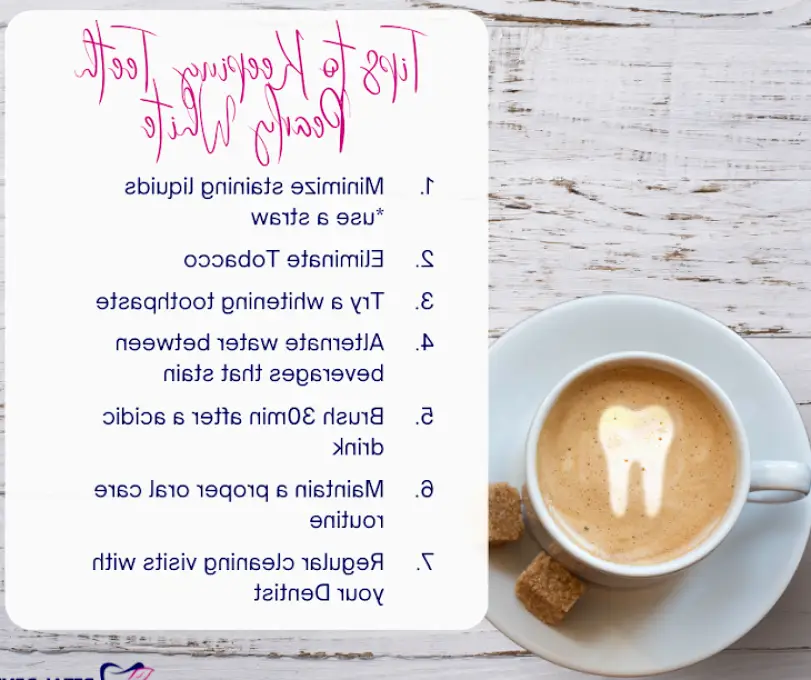 Tips to Keeping Teeth
Pearly White
1. Minimize staining liquids
*use a straw
2. Eliminate Tobacco
3. Try a whitening toothpaste
4. Alternate water between
beverages that stain
5. Brush 30min after a acidic
drink
6. Maintain a proper oral care
routine
7. Regular cleaning visits with
your Dentist